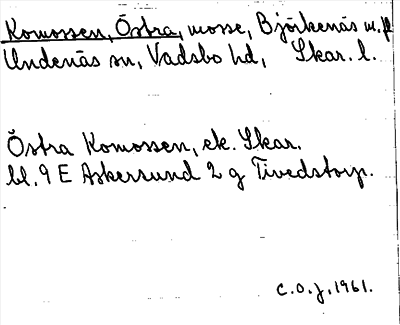 Komossen, Östra, mosse, Björkenäs m.fl
Undenäs sn, Vadsbo hd, Skar. l.
Östra Komossen, ek. Skar.
bl. 9 E Askersund 2 g Tivedstorp.
C.O.J. 1961.